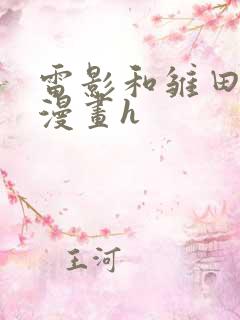 雷影和雏田
漫畫h
王河